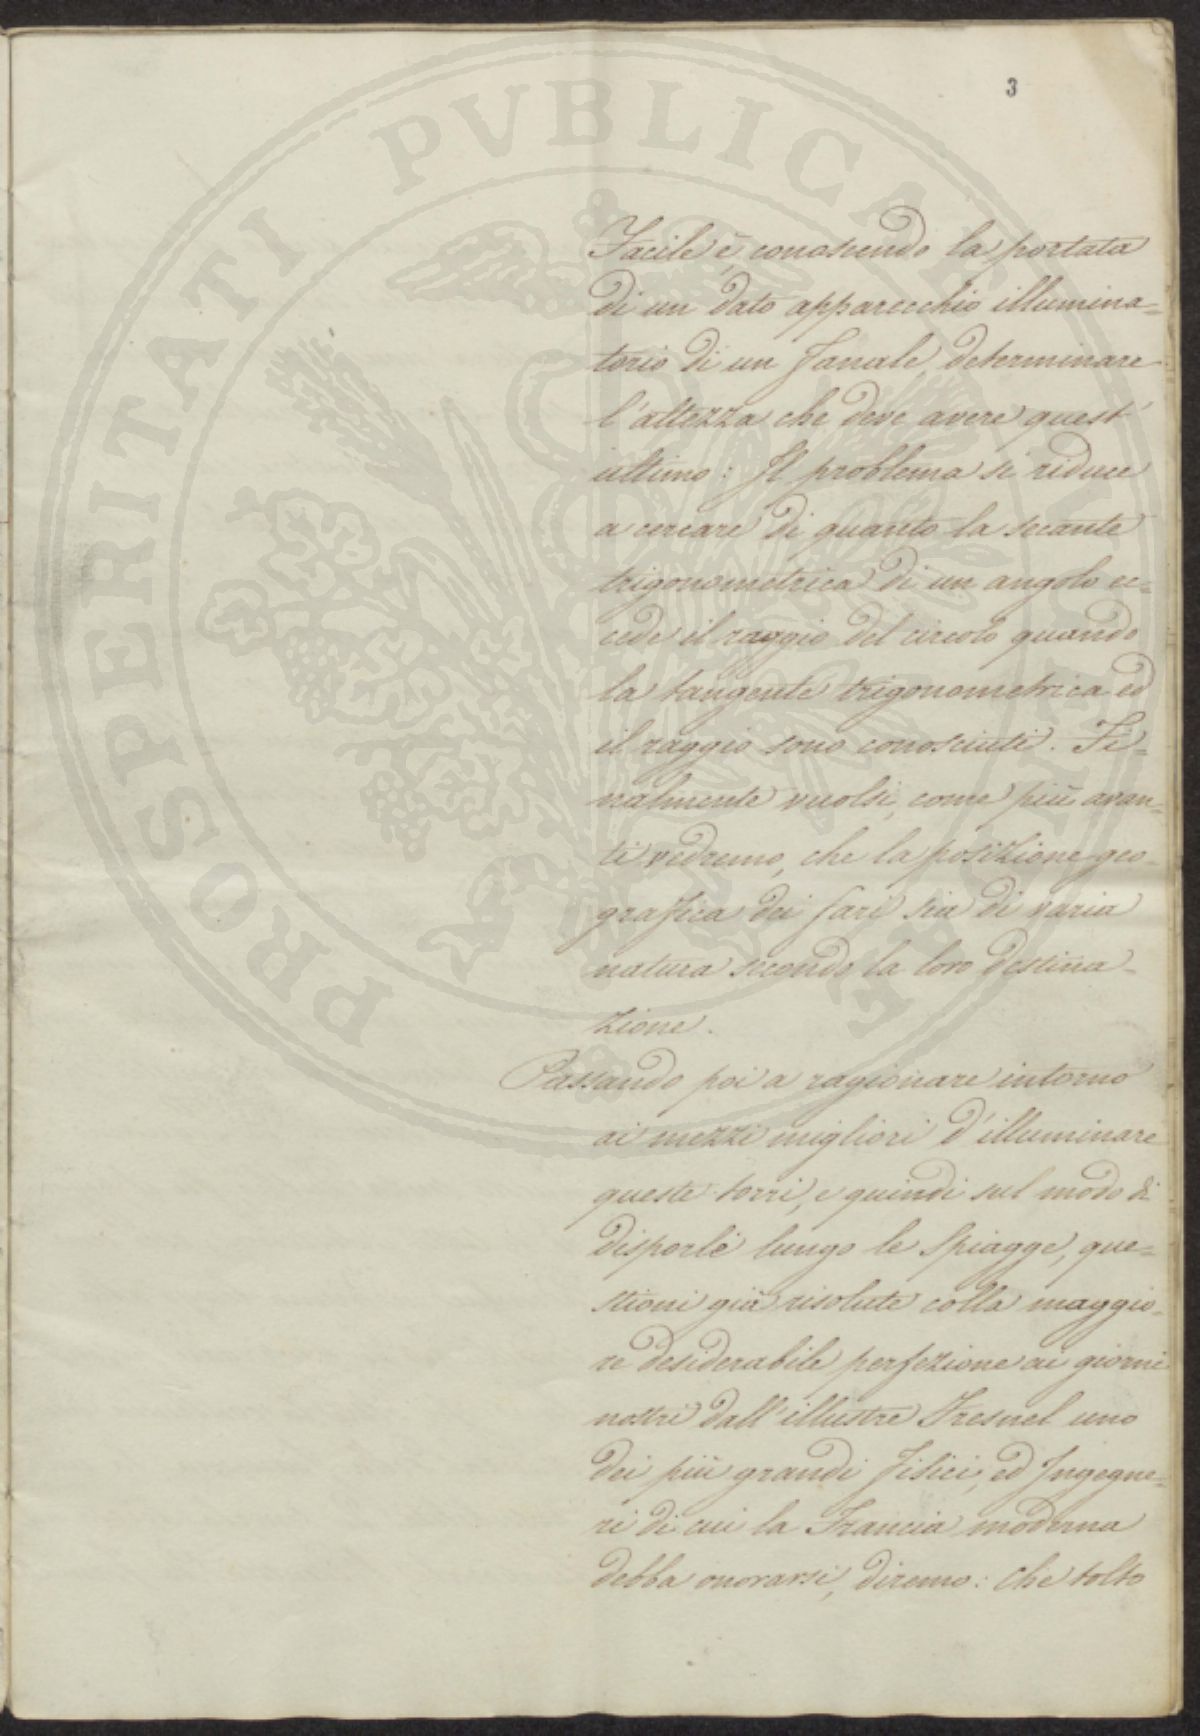 3
PROSPERITATI PVBLICAE
Facile è, conoscendo la portata
di un dato apparecchio illumina=
torio di un Fanale, determinare
l'altezza che deve avere quest'
ultimo: Il problema si riduce
a cercare di quanto la secante
trigonometrica di un angolo ec=
cede il raggio del circolo quando
la tangente trigonometrica ed
il raggio sono conosciuti. Fi=
nalmente vuolsi, come più avan=
ti vedremo, che la posizione geo=
grafica dei fari sia di varia
natura secondo la loro destina=
zione.
Passando poi a ragionare intorno
ai mezzi migliori d'illuminare
queste torri, e quindi sul modo di
disporle lungo le Spiagge, que=
stioni già risolute colla maggio=
re desiderabile perfezione ai giorni
nostri dall'illustre Fresnel uno
dei più grandi Fisici, ed Ingegne=
ri di cui la Francia moderna
debba onorarsi, diremo: che tolto